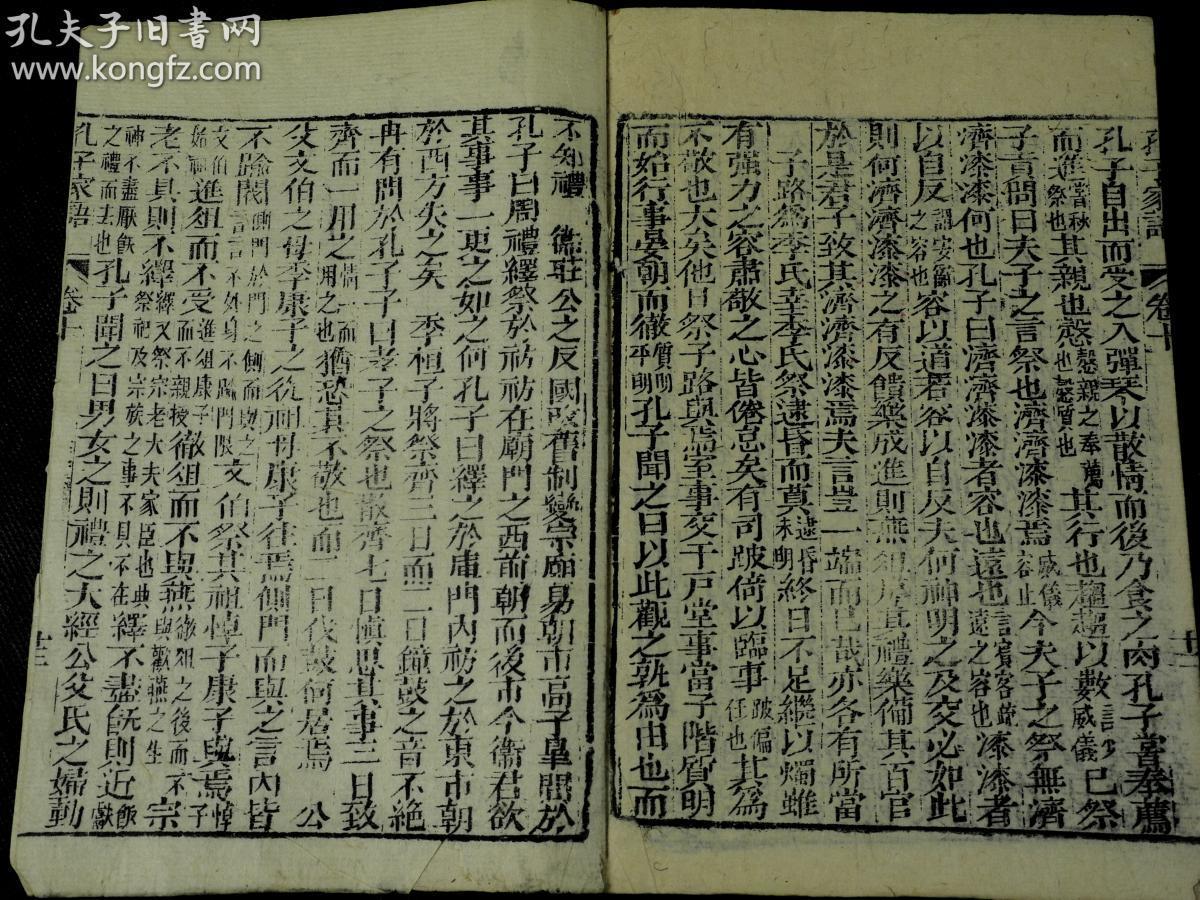 孔夫子旧书网
www.kongfz.com
孔子家語 卷十
孔子自出而受之入彈琴以散情而後乃食之肉孔子嘗奉薦
而進嘗秋祭也其親也慤慤親之奉薦也慤質也其行也趨趨以數言少威儀已祭
子貢問曰夫子之言祭也濟濟漆漆焉威儀容止今夫子之祭無濟
濟漆漆何也孔子曰濟濟漆漆者容也遠也言賓客疏遠之容也漆漆者
以自反謂安徐之容也容以遠若容以自反夫何神明之及交必如此
則何濟濟漆漆之有反饋樂成進則燕俎序其禮樂備其百官
於是君子致其濟濟漆漆焉夫言豈一端而已哉亦各有所當
子路為季氏宰季氏祭逮昏而奠逮昏未明終日不足繼以燭雖
有强力之容肅敬之心皆倦怠矣有司跛倚以臨事跛偏任也其為
不敬也大矣他日祭子路與焉室事交于戶堂事當于階質明
而始行事晏朝而徹質明平明孔子聞之曰以此觀之孰為由也而
不知禮 衞莊公之反國改舊制變宗廟易朝市高子臯問於
孔子曰周禮繹祭於祊祊在廟門之西前朝而後市今衞君欲
其事事一更之如之何孔子曰繹之於庫門內祊之於東市朝
於西方失之矣 季桓子將祭齊三日而二日鐘鼓之音不絶
冉有問於孔子子曰孝子之祭也散齊七日慎思其事三日致
齊而一用之情一而用之也猶恐其不敬也而二日伐鼓何居焉 公
父文伯之母季康子之從祖母康子往焉側門而與之言內皆
不踰閾側門於門之側而與之言言不外身不踰門限文伯祭其祖悼子康子與焉悼子
文伯始祖進俎而不受進俎康子而不親授徹俎而不與燕徹俎之後而不與燕宗
老不具則不繹繹又祭宗老大夫家臣也典祭祀及宗族之事不具不在繹不盡飫則近飫厭
神不盡厭飫之禮而去也孔子聞之曰男女之則禮之大經公父氏之婦動
孔子家語 卷十 十三